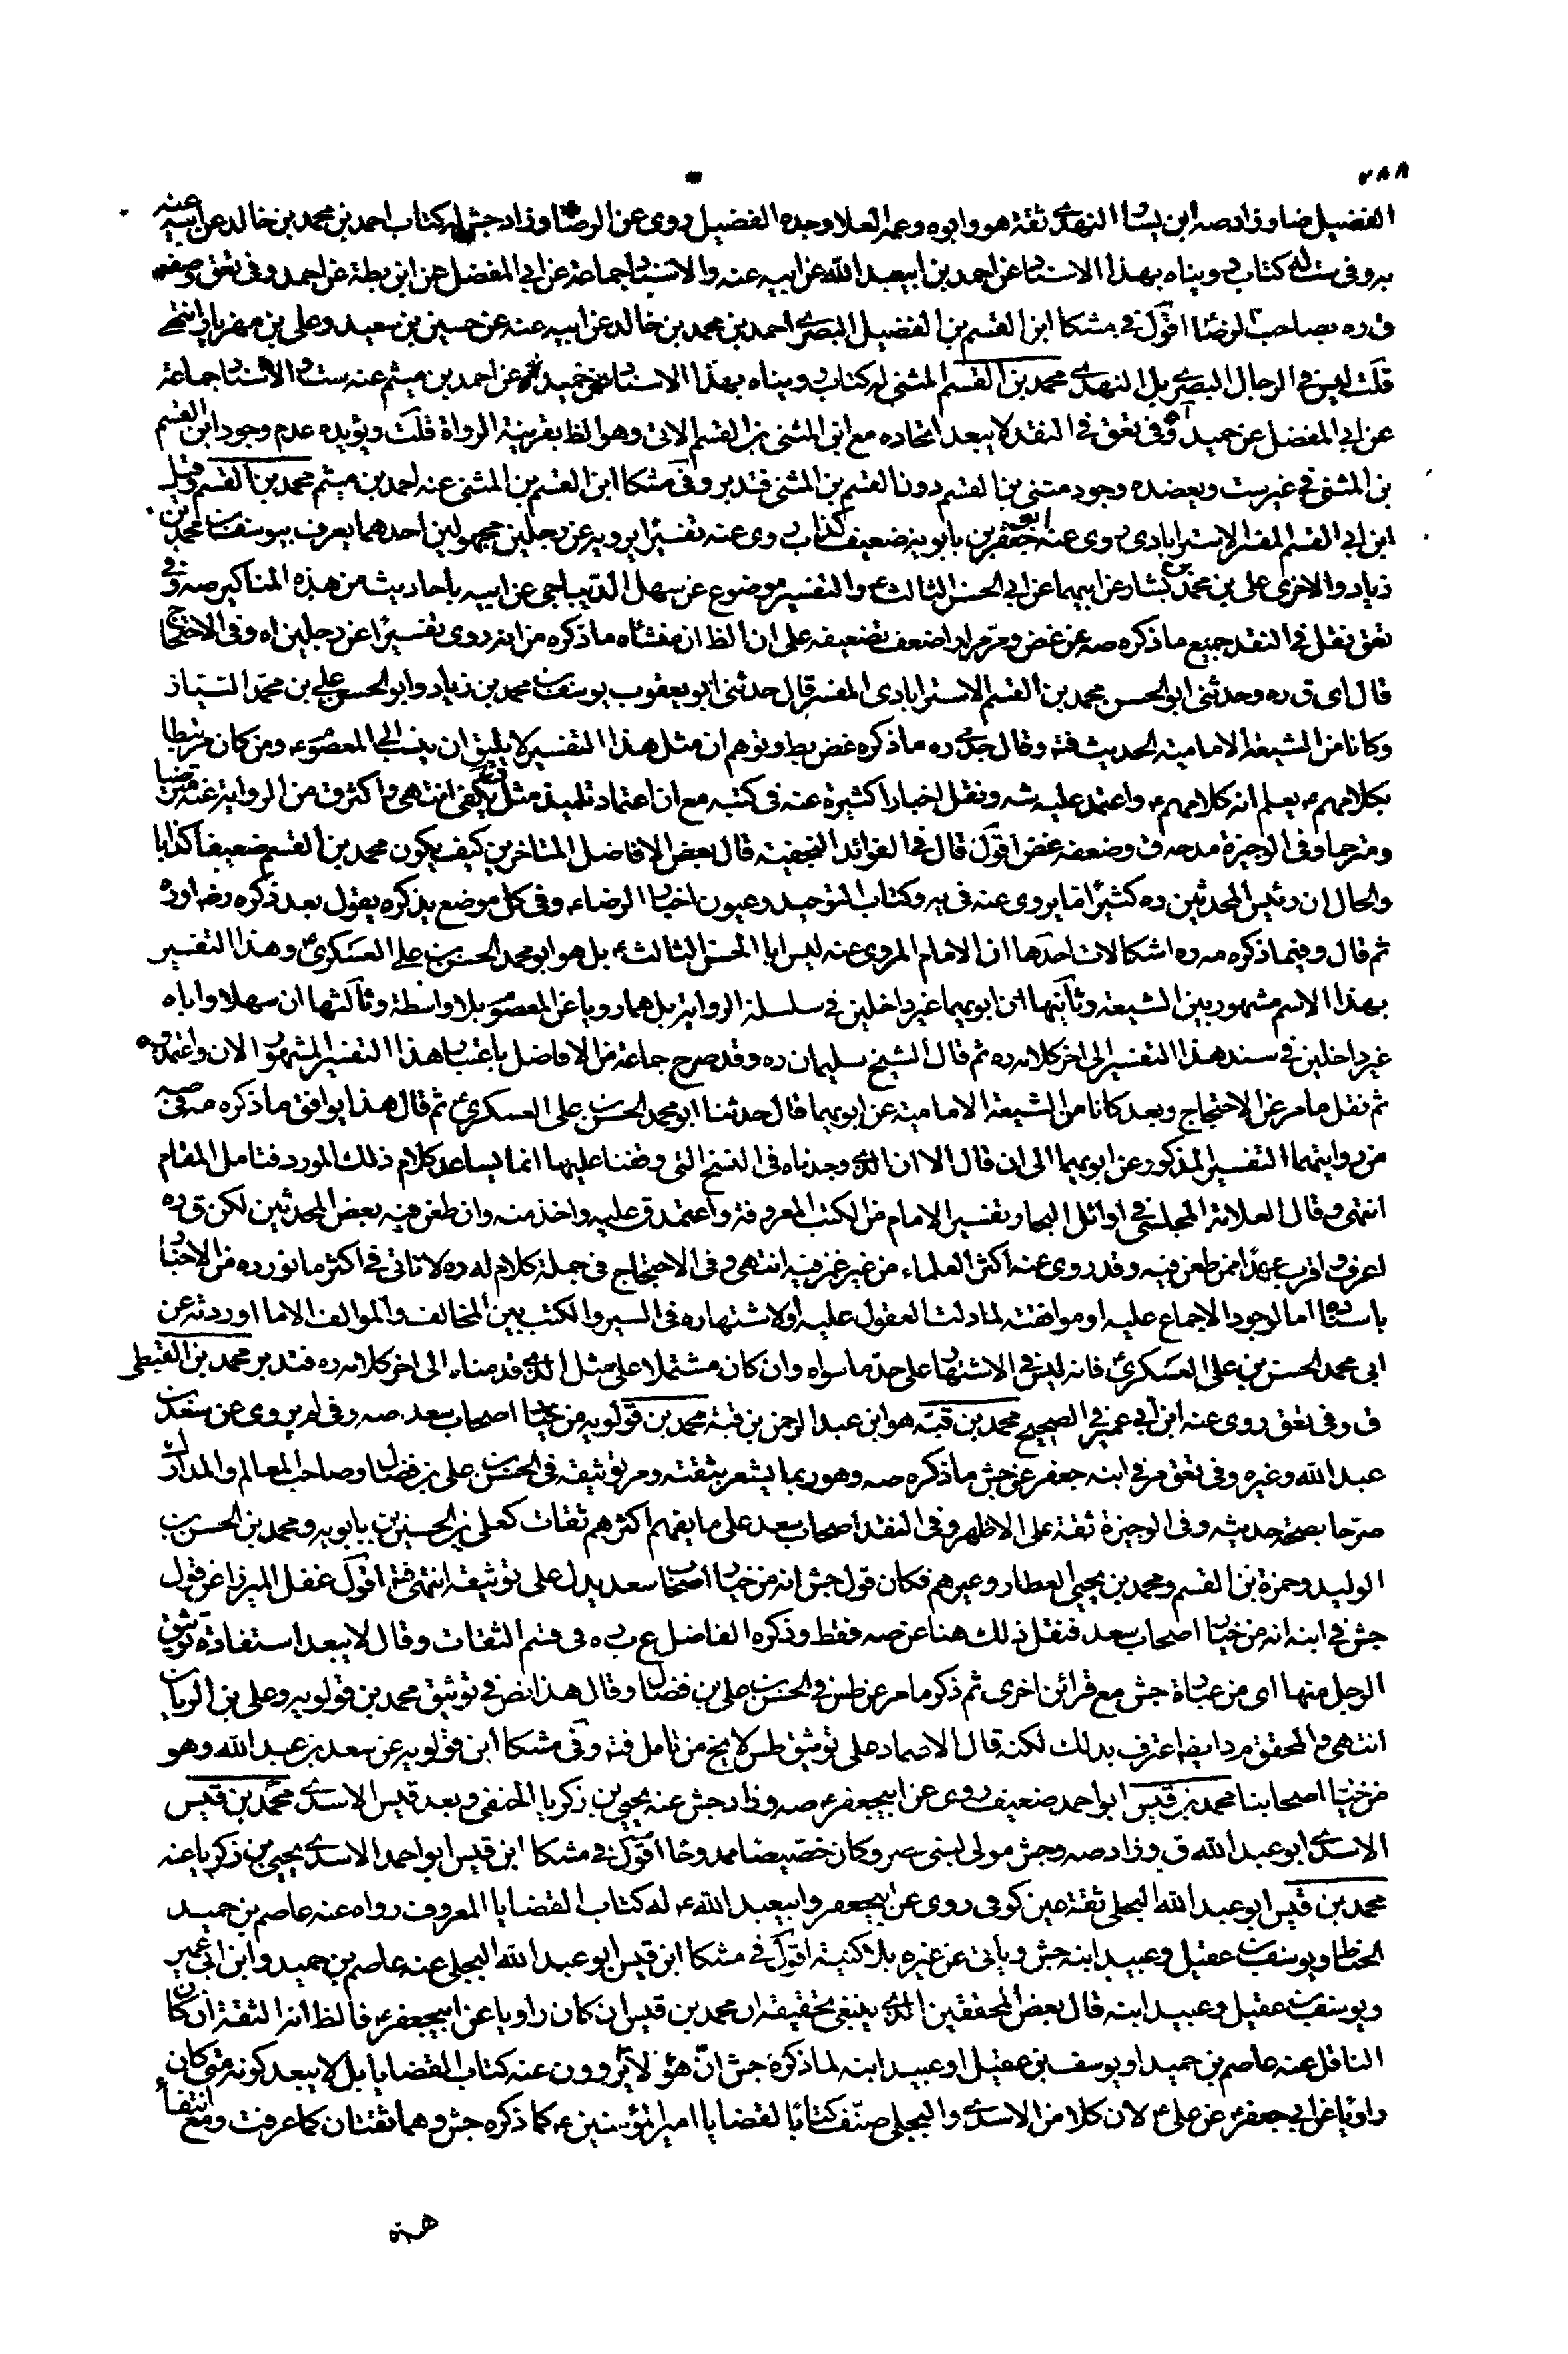 ٢٨٨
الفضيل ضا وزاد صه ابن يسار النهدى ثقة هو وابوه وعمه العلا وجده الفضيل روى عن الرضا وزاد جش له كتاب احمد بن محمد بن خالد عن ابيه عنه
به وفى ست له كتاب رويناه بهذا الاسناد عن احمد بن ابيعبد الله عن ابيه عنه والاسناد جماعة عن ابى المفضل عن ابن بطة عن احمد وفى تعق وصفه
ق ره بصاحب الرضا اقول فى مشكا ابن القسم بن الفضيل البصرى احمد بن محمد بن خالد عن ابيه عنه عن حسين بن سعيد وعلى بن مهزيار انتهى
قلت ليس فى الرجال البصرى بل النهدى محمد بن القسم المثنى له كتاب رويناه بهذا الاسناد عن حميد عن احمد بن ميثم عنه ست والاسناد جماعة
عن ابى المفضل عن حميد وفى تعق فى النقد لا يبعد اتحاده مع ابن المثنى بن القسم الاتى وهو الظ بقرينة الرواة قلت ويؤيده عدم وجود ابن القسم
بن المثنى فى غير ست ويعضده وجود مثنى بن القسم دون القسم بن المثنى فتدبر وفى مشكا ابن القسم بن المثنى عنه احمد بن ميثم محمد بن القسم وقيل
ابن ابى القسم المفسر الاسترابادى روى عنه ابو جعفر بن بابويه ضعيف كذاب روى عنه تفسيرا يرويه عن رجلين مجهولين احدهما يعرف بيوسف بن محمد بن
زياد والاخر على بن محمد بن يسار عن ابيهما عن ابى الحسن الثالث ع والتفسير موضوع عن سهل الديباجى عن ابيه باحاديث من هذه المناكير صه وفى
تعق نقل فى النقد جميع ما ذكره صه عن غض ومر مرارا ضعف تضعيفه على ان الظ ان منشاه ما ذكره من انه روى تفسيرا عن رجلين اه وفى الاحتجاج
قال اى ق ره وحدثنى ابو الحسن محمد بن القسم الاسترابادى المفسر قال حدثنى ابو يعقوب يوسف بن محمد بن زياد وابو الحسن على بن محمد السيار
وكانا من الشيعة الامامية الحديث فتد وقال جدى ره ما ذكره غض بط وتوهم ان مثل هذا التفسير لا يليق ان ينسب الى المعصوم ع ومن كان مرتبطا
بكلامهم ع يعلم انه كلامهم ع واعتمد عليه شه ونقل اخبارا كثيرة عنه فى كتبه مع ان اعتماد تلميذ مثل ق يكفى انتهى واكثر ق من الرواية عنه مترضيا
ومترحما وفى الوجيزة مدحه ق وضعفه غض اقول قال فى الفوائد النجفية قال بعض الافاضل المتاخرين كيف يكون محمد بن القسم ضعيفا كذابا
والحال ان رئيس المحدثين ره كثيرا ما يروى عنه فى يه وكتاب التوحيد وعيون اخبار الرضا ع وفى كل موضع يذكره يقول بعد ذكره رضه او ره
ثم قال وفيما ذكره مه ره اشكالات احدها ان الامام المروى عنه ليس ابا الحسن الثالث ع بل هو ابو محمد الحسن بن على العسكرى ع وهذا التفسير
بهذا الاسم مشهور بين الشيعة وثانيها ان ابويهما غير داخلين فى سلسلة الرواية بل هما رويا عن المعصوم بلا واسطة وثالثها ان سهلا واباه
غير داخلين فى سند هذا التفسير الى اخر كلامه ره ثم قال الشيخ سليمان ره وقد صرح جماعة من الافاضل باعتبار هذا التفسير المشهور الان واعتمدوه
ثم نقل ما مر عن الاحتجاج وبعد كانا من الشيعة الامامية عن ابويهما قال حدثنا ابو محمد الحسن بن على العسكرى ع ثم قال هذا يوافق ما ذكره مه فى صه
من روايتهما التفسير المذكور عن ابويهما الى ان قال الا ان الذى وجدناه فى النسخ التى وقفنا عليها انما يساعد كلام ذلك المورد فتامل المقام
انتهى وقال العلامة المجلسى فى اوائل البحار وتفسير الامام من الكتب المعروفة واعتمد ق عليه واخذ منه وان طعن فيه بعض المحدثين لكن ق ره
اعرف واقرب عهدا ممن طعن فيه وقد روى عنه اكثر العلماء من غير غمز فيه انتهى وفى الاحتجاج فى جملة كلام له ره لا ناتى فى اكثر ما نورده من الاخبار
باسناده اما لوجود الاجماع عليه او موافقته لما دلت العقول عليه او لاشتهاره فى السير والكتب بين المخالف والموالف الا ما اوردته عن
ابى محمد الحسن بن على العسكرى ع فانه ليس فى الاشتهار على حد ما سواه وان كان مشتملا على مثل الذى قدمناه الى اخر كلامه ره فتدبر محمد بن القبطى
ق وفى تعق روى عنه ابن ابى عمير فى الصحيح محمد بن قبة هو ابن عبد الرحمن بن قبة محمد بن قولويه من خيار اصحاب سعد صه وفى لم يروى عن سعد بن
عبد الله وغيره وفى تعق مر فى ابنه جعفر عن جش ما ذكره صه وهو ربما يشعر بثقته ومر توثيقه فى الحسن بن على بن فضال وصاحب المعالم والمدارك
صرحا بصحة حديثه وفى الوجيزة ثقة على الاظهر وفى النقد اصحاب سعد على ما يفهم اكثرهم ثقات كعلى بن الحسين بن بابويه ومحمد بن الحسن بن
الوليد وحمزة بن القسم ومحمد بن يحيى العطار وغيرهم فكان قول جش انه من خيار اصحاب سعد يدل على توثيقه انتهى فتد اقول غفل الميرزا عن قول
جش فى ابنه انه من خيار اصحاب سعد فنقل ذلك هنا عن صه فقط وذكره الفاضل ع ب ره فى قسم الثقات وقال لا يبعد استفادة توثيق
الرجل منها اى من عبارة جش مع قرائن اخرى ثم ذكر ما مر عن طس فى الحسن بن على بن فضال وقال هذا نص فى توثيق محمد بن قولويه وعلى بن الريان
انتهى والمحقق مر دايضا اعترف بذلك لكنه قال الاعتماد على توثيق طس لا يخ من تامل فتد وفى مشكا ابن قولويه عن سعد بن عبد الله وهو
من خيار اصحابنا محمد بن قيس ابو احمد ضعيف روى عن ابيجعفر ع صه وزاد جش عنه يحيى بن زكريا الحنفى وبعد قيس الاسدى محمد بن قيس
الاسدى ابو عبد الله ق وزاد صه وجش مولى لبنى نصر وكان خصيصا ممدوحا اقول فى مشكا ابن قيس ابو احمد الاسدى يحيى بن زكريا عنه
محمد بن قيس ابو عبد الله البجلى ثقة عين كوفى روى عن ابيجعفر وابيعبد الله ع له كتاب القضايا المعروف رواه عنه عاصم بن حميد
الحناط ويوسف بن عقيل وعبيد ابنه جش وياتى عن غيره بلا كنية اقول فى مشكا ابن قيس ابو عبد الله البجلى عنه عاصم بن حميد وابن ابى عمير
ويوسف بن عقيل وعبيد ابنه قال بعض المحققين الذى ينبغى تحقيقه ان محمد بن قيس ان كان راويا عن ابيجعفر ع فالظ انه الثقة ان كان
الناقل عنه عاصم بن حميد او يوسف بن عقيل او عبيد ابنه لما ذكره جش ان هؤلاء يروون عنه كتاب القضايا بل لا يبعد كونه متى كان
راويا عن ابى جعفر ع عن على ع لان كلا من الاسدى والبجلى صنف كتابا لقضايا امير المؤمنين ع كما ذكره جش وهما ثقتان كما عرفت ومع انتفاء
هذه